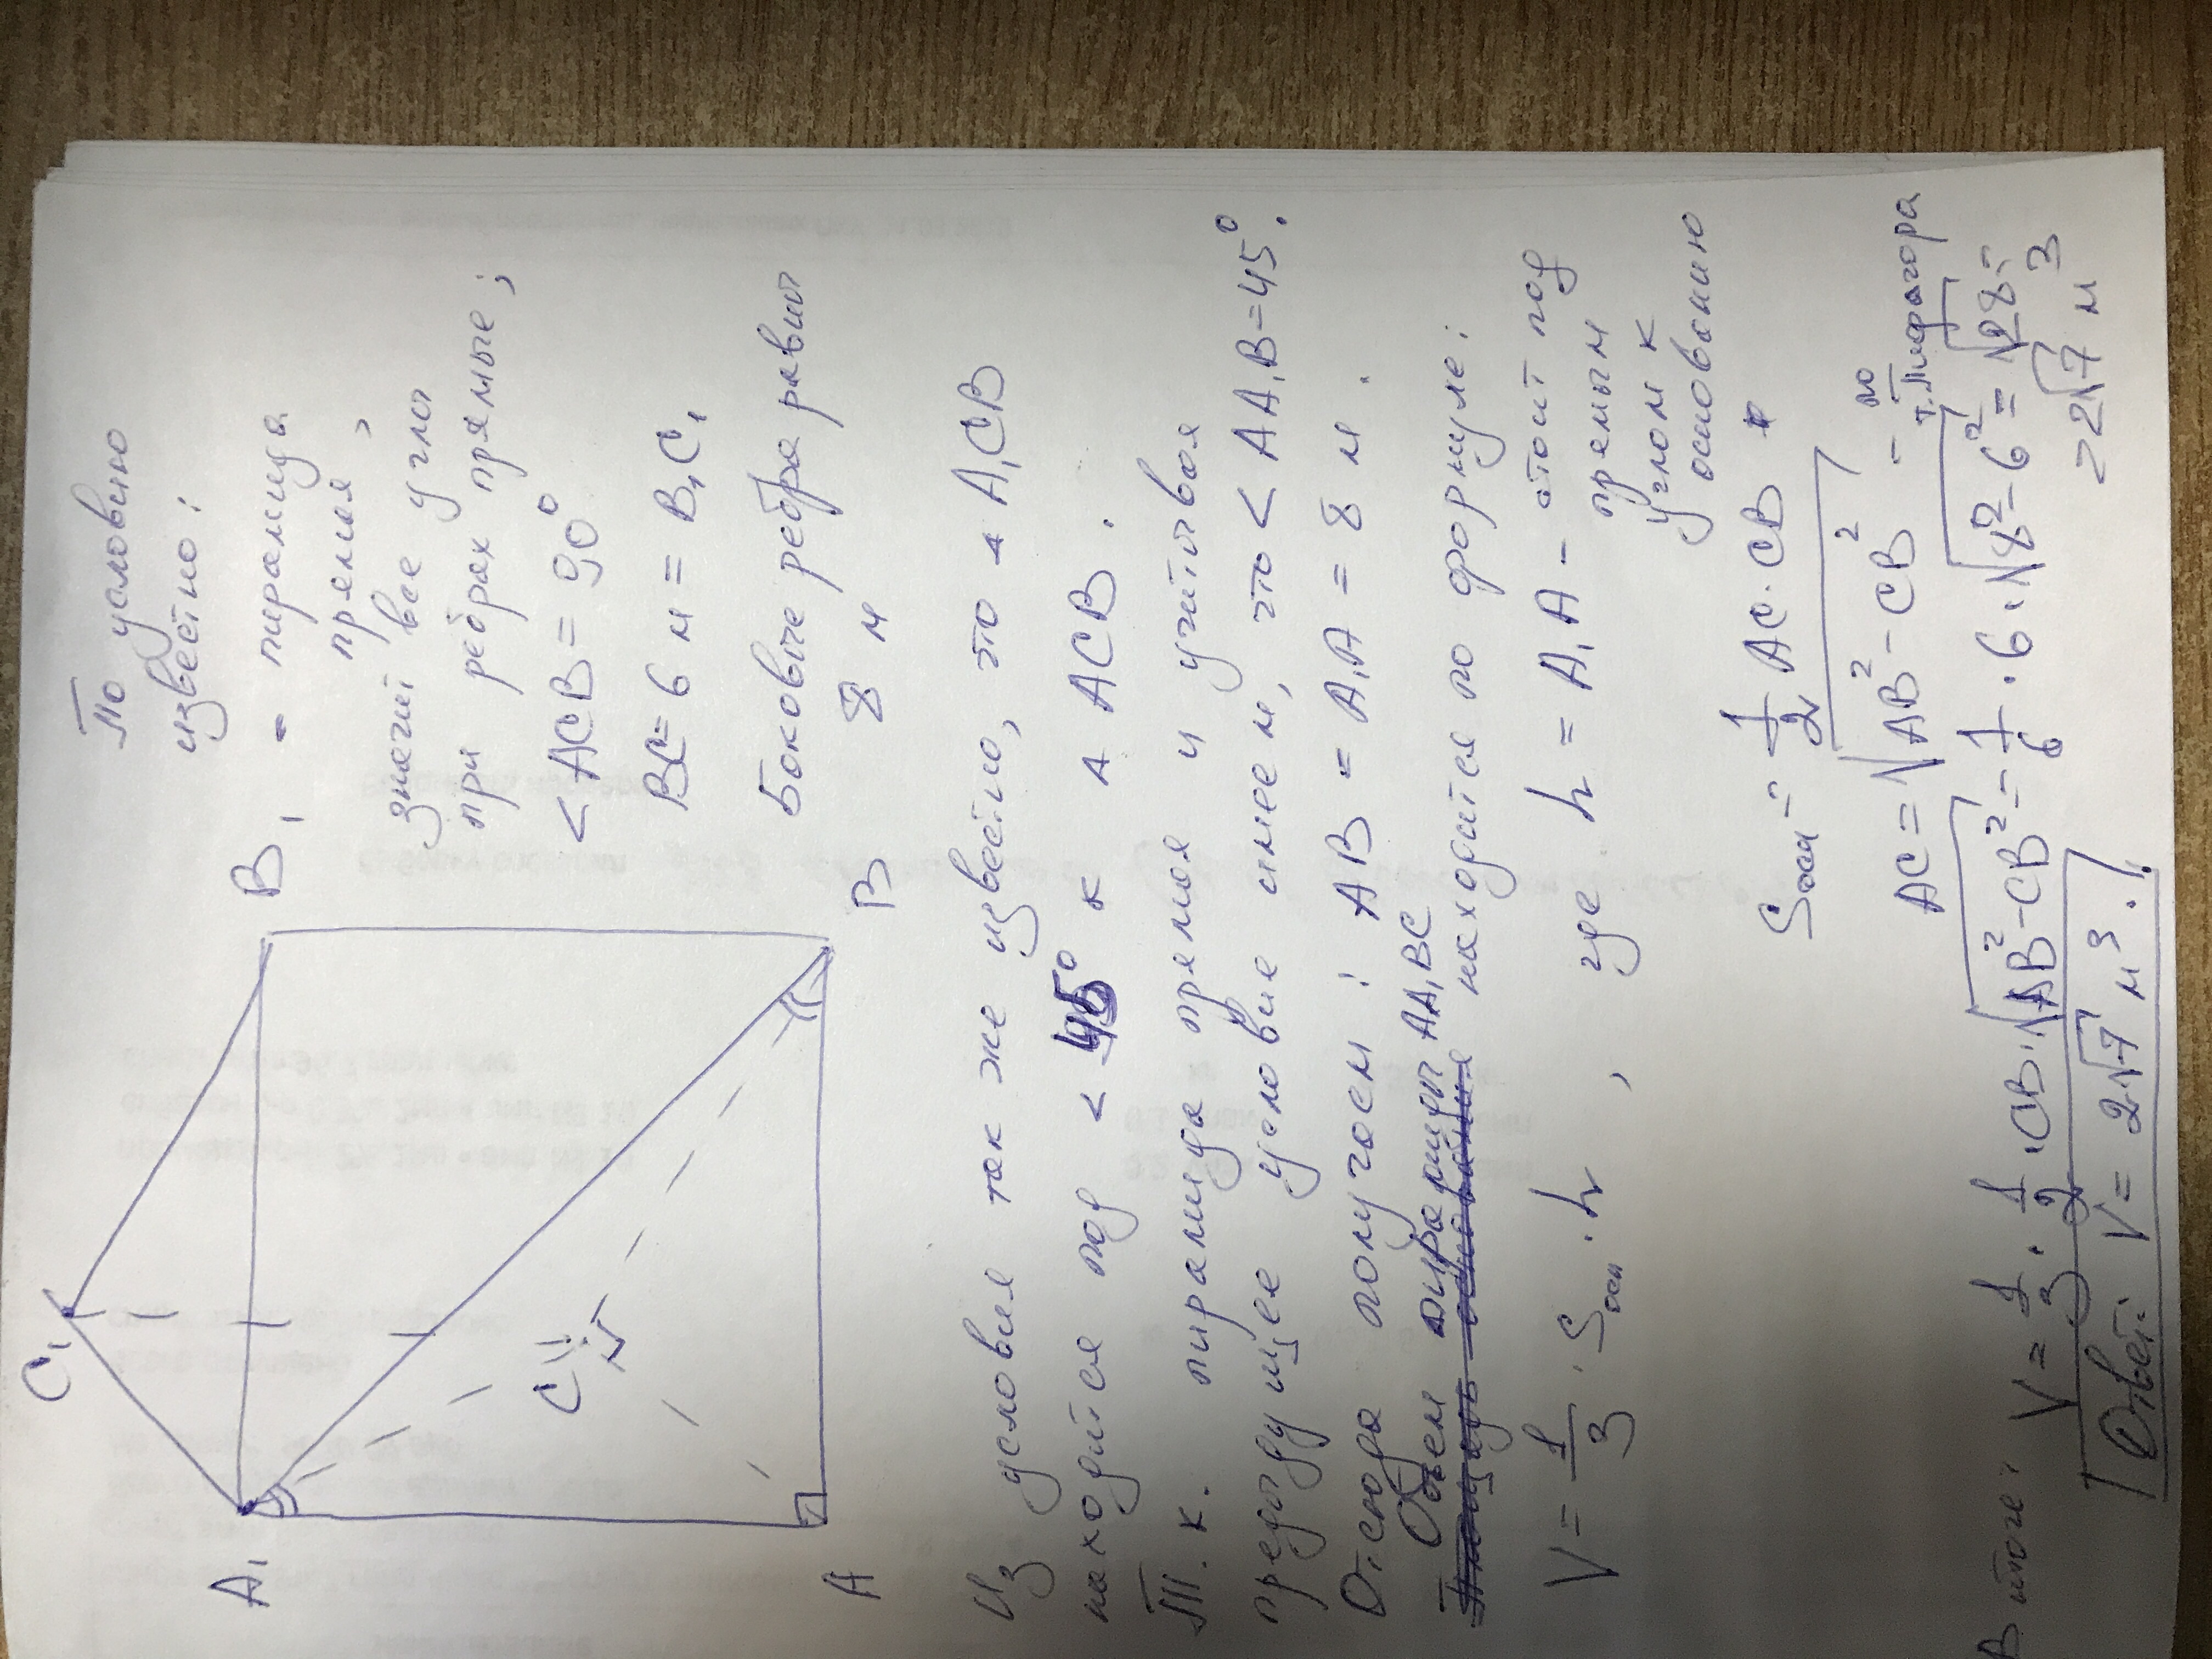 C₁
A₁
B₁
C
A
B
По условию
известно:
- пирамида
прямая,
значит все углы
при ребрах прямые;
< ACB = 90°
BC = 6 м = B₁C₁
Боковые ребра равны
8 м
Из условия так же известно, что △ A₁CB
находится под < 45° к △ ACB.
Т.к. пирамида прямая и учитывая
предыдущее условие имеем, что < AA₁B = 45°.
Отсюда получаем: AB = A₁A = 8 м.
Объем пирамиды AA₁BC находится по формуле:
Площадь основания
V = 1/3 · Sосн · h, где h = A₁A - стоит под
прямым
углом к
основанию
Sосн = 1/2 AC · CB
AC = √AB² - CB² - по
т. Пифагора
В итоге: V = 1/3 · 1/2 · CB · √AB² - CB² = 1/6 · 6 · √8² - 6² = √28 =
= 2√7 м³
Ответ: V = 2√7 м³.